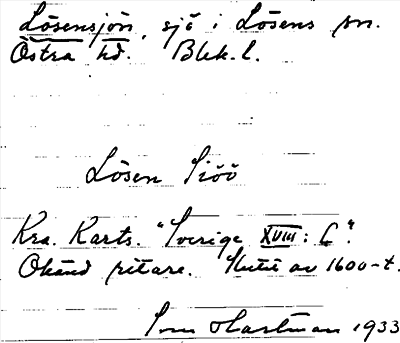 Lösensjön, sjö i Lösens sn.
Östra hd. Blek.l.
Lösen Siöö
Kra. Karts. "Sverige XVIII: C".
Okänd ritare. Slutet av 1600-t.
Hartman 1933